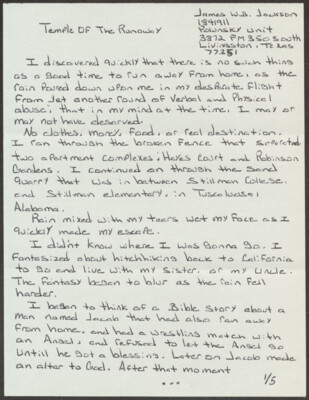 James W.D. Jackson
1341911
Polunsky Unit
3872 FM 350 South
Livingston, Texas
77351
Temple Of The Runaway
I discovered quickly that there is no such thing
as a good time to run away from home, as the
rain poured down upon me in my desperate flight
from yet another round of Verbal and Physical
abuse; that in my mind at the time, I may or
may not have deserved.
No clothes, money, food, or real destination.
I ran through the broken fence that seperated
two apartment complexes; Hayes Court and Robinson
Gardens. I continued on through the sand
quarry that was in between Stillman College,
and Stillman elementary, in Tuscaloosa,
Alabama.
Rain mixed with my tears wet my face as I
quickly made my escape.
I didn't know where I was gonna go. I
fantasized about hitchhiking back to California
to go and live with my sister, or my Uncle.
The fantasy began to blur as the rain fell
harder.
I began to think of a Bible Story about a
man named Jacob that had also ran away
from home, and had a wrestling match with
an Angel, and refused to let the Angel go
untill he got a blessing. Later on Jacob made
an altar to God. After that moment
1/5